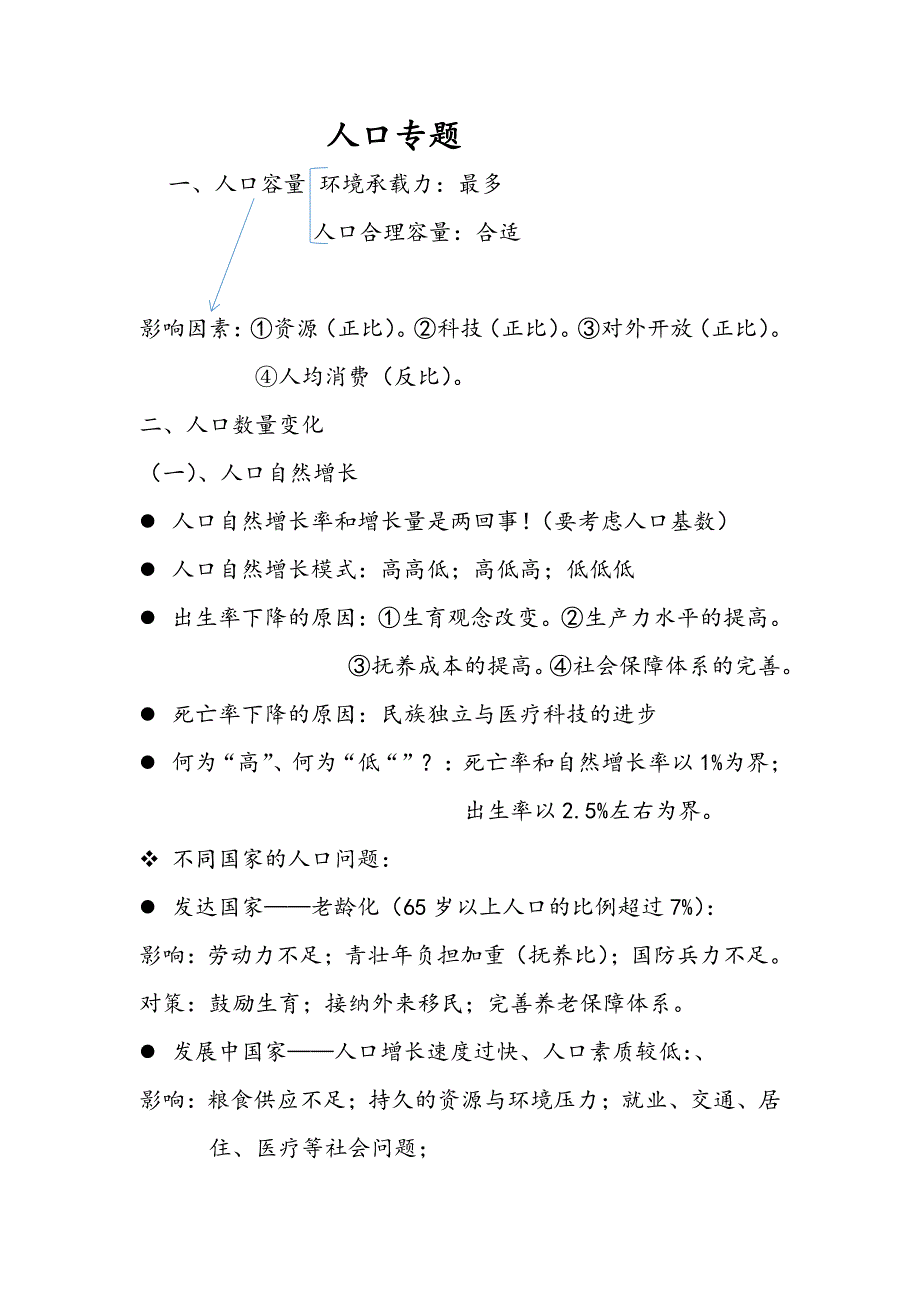 人口专题
一、人口容量 环境承载力：最多
人口合理容量：合适
影响因素：①资源（正比）。②科技（正比）。③对外开放（正比）。
④人均消费（反比）。
二、人口数量变化
（一）、人口自然增长
● 人口自然增长率和增长量是两回事！（要考虑人口基数）
● 人口自然增长模式：高高低；高低高；低低低
● 出生率下降的原因：①生育观念改变。②生产力水平的提高。
③抚养成本的提高。④社会保障体系的完善。
● 死亡率下降的原因：民族独立与医疗科技的进步
● 何为“高”、何为“低“”？：死亡率和自然增长率以1%为界；
出生率以2.5%左右为界。
❖ 不同国家的人口问题：
● 发达国家——老龄化（65岁以上人口的比例超过7%）：
影响：劳动力不足；青壮年负担加重（抚养比）；国防兵力不足。
对策：鼓励生育；接纳外来移民；完善养老保障体系。
● 发展中国家——人口增长速度过快、人口素质较低：、
影响：粮食供应不足；持久的资源与环境压力；就业、交通、居
住、医疗等社会问题；